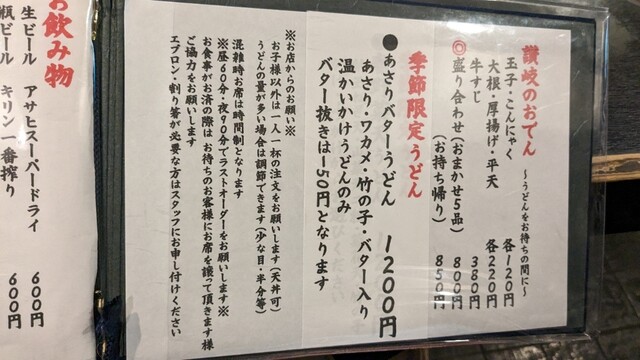 讃岐のおでん ～うどんをお待ちの間に～
玉子・こんにゃく 各120円
大根・厚揚げ・平天 各220円
牛すじ 380円
◎盛り合わせ（おまかせ5品） 800円
（お持ち帰り） 850円
季節限定うどん
●あさりバターうどん 1200円
あさり・ワカメ・竹の子・バター入り
温かいかけうどんのみ
バター抜きは-50円となります
※お店からのお願い※
お子様以外は一人一杯の注文をお願いします（天丼可）
うどんの量が多い場合は調節できます（少な目・半分等）
混雑時お席は時間制となります
※昼60分・夜90分でラストオーダーをお願いします※
お食事がお済の際は お待ちのお客様にお席を譲って頂きます様
ご協力をお願いします
エプロン・割り箸が必要な方はスタッフにお申し付けください
お飲み物
生ビール アサヒスーパードライ 600円
瓶ビール キリン一番搾り 600円